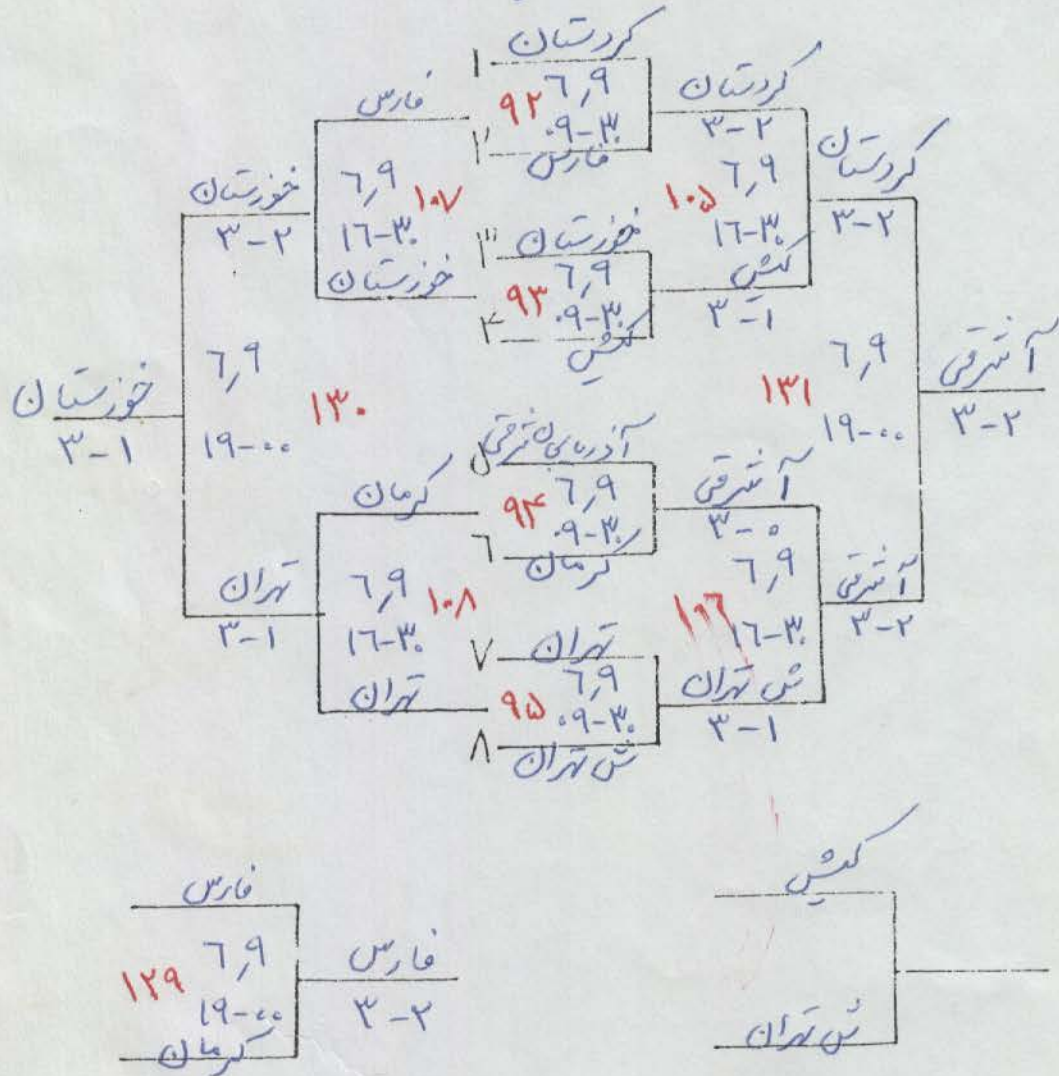 ۱ کردستان
۹۲ ۶٫۹
۰۹-۳۰
۲ فارس
۳ خوزستان
۹۳ ۶٫۹
۰۹-۳۰
۴ کیش
۵ آذربایجان شرقی
۹۴ ۶٫۹
۰۹-۳۰
۶ کرمان
۷ تهران
۹۵ ۶٫۹
۰۹-۳۰
۸ ش تهران
کردستان
۳-۲
۱۰۵ ۶٫۹
۱۶-۳۰
کیش
۳-۱
آ شرقی
۳-۰
۱۰۶ ۶٫۹
۱۶-۳۰
ش تهران
۳-۱
کردستان
۳-۲
۱۳۱ ۶٫۹
۱۹-۰۰
آ شرقی
۳-۲
آ شرقی
۳-۲
فارس
۶٫۹ ۱۰۷
۱۶-۳۰
خوزستان
کرمان
۶٫۹ ۱۰۸
۱۶-۳۰
تهران
خوزستان
۳-۲
۶٫۹ ۱۳۰
۱۹-۰۰
تهران
۳-۱
خوزستان
۳-۱
فارس
۱۲۹ ۶٫۹
۱۹-۰۰
کرمان
فارس
۳-۲
کیش
ش تهران